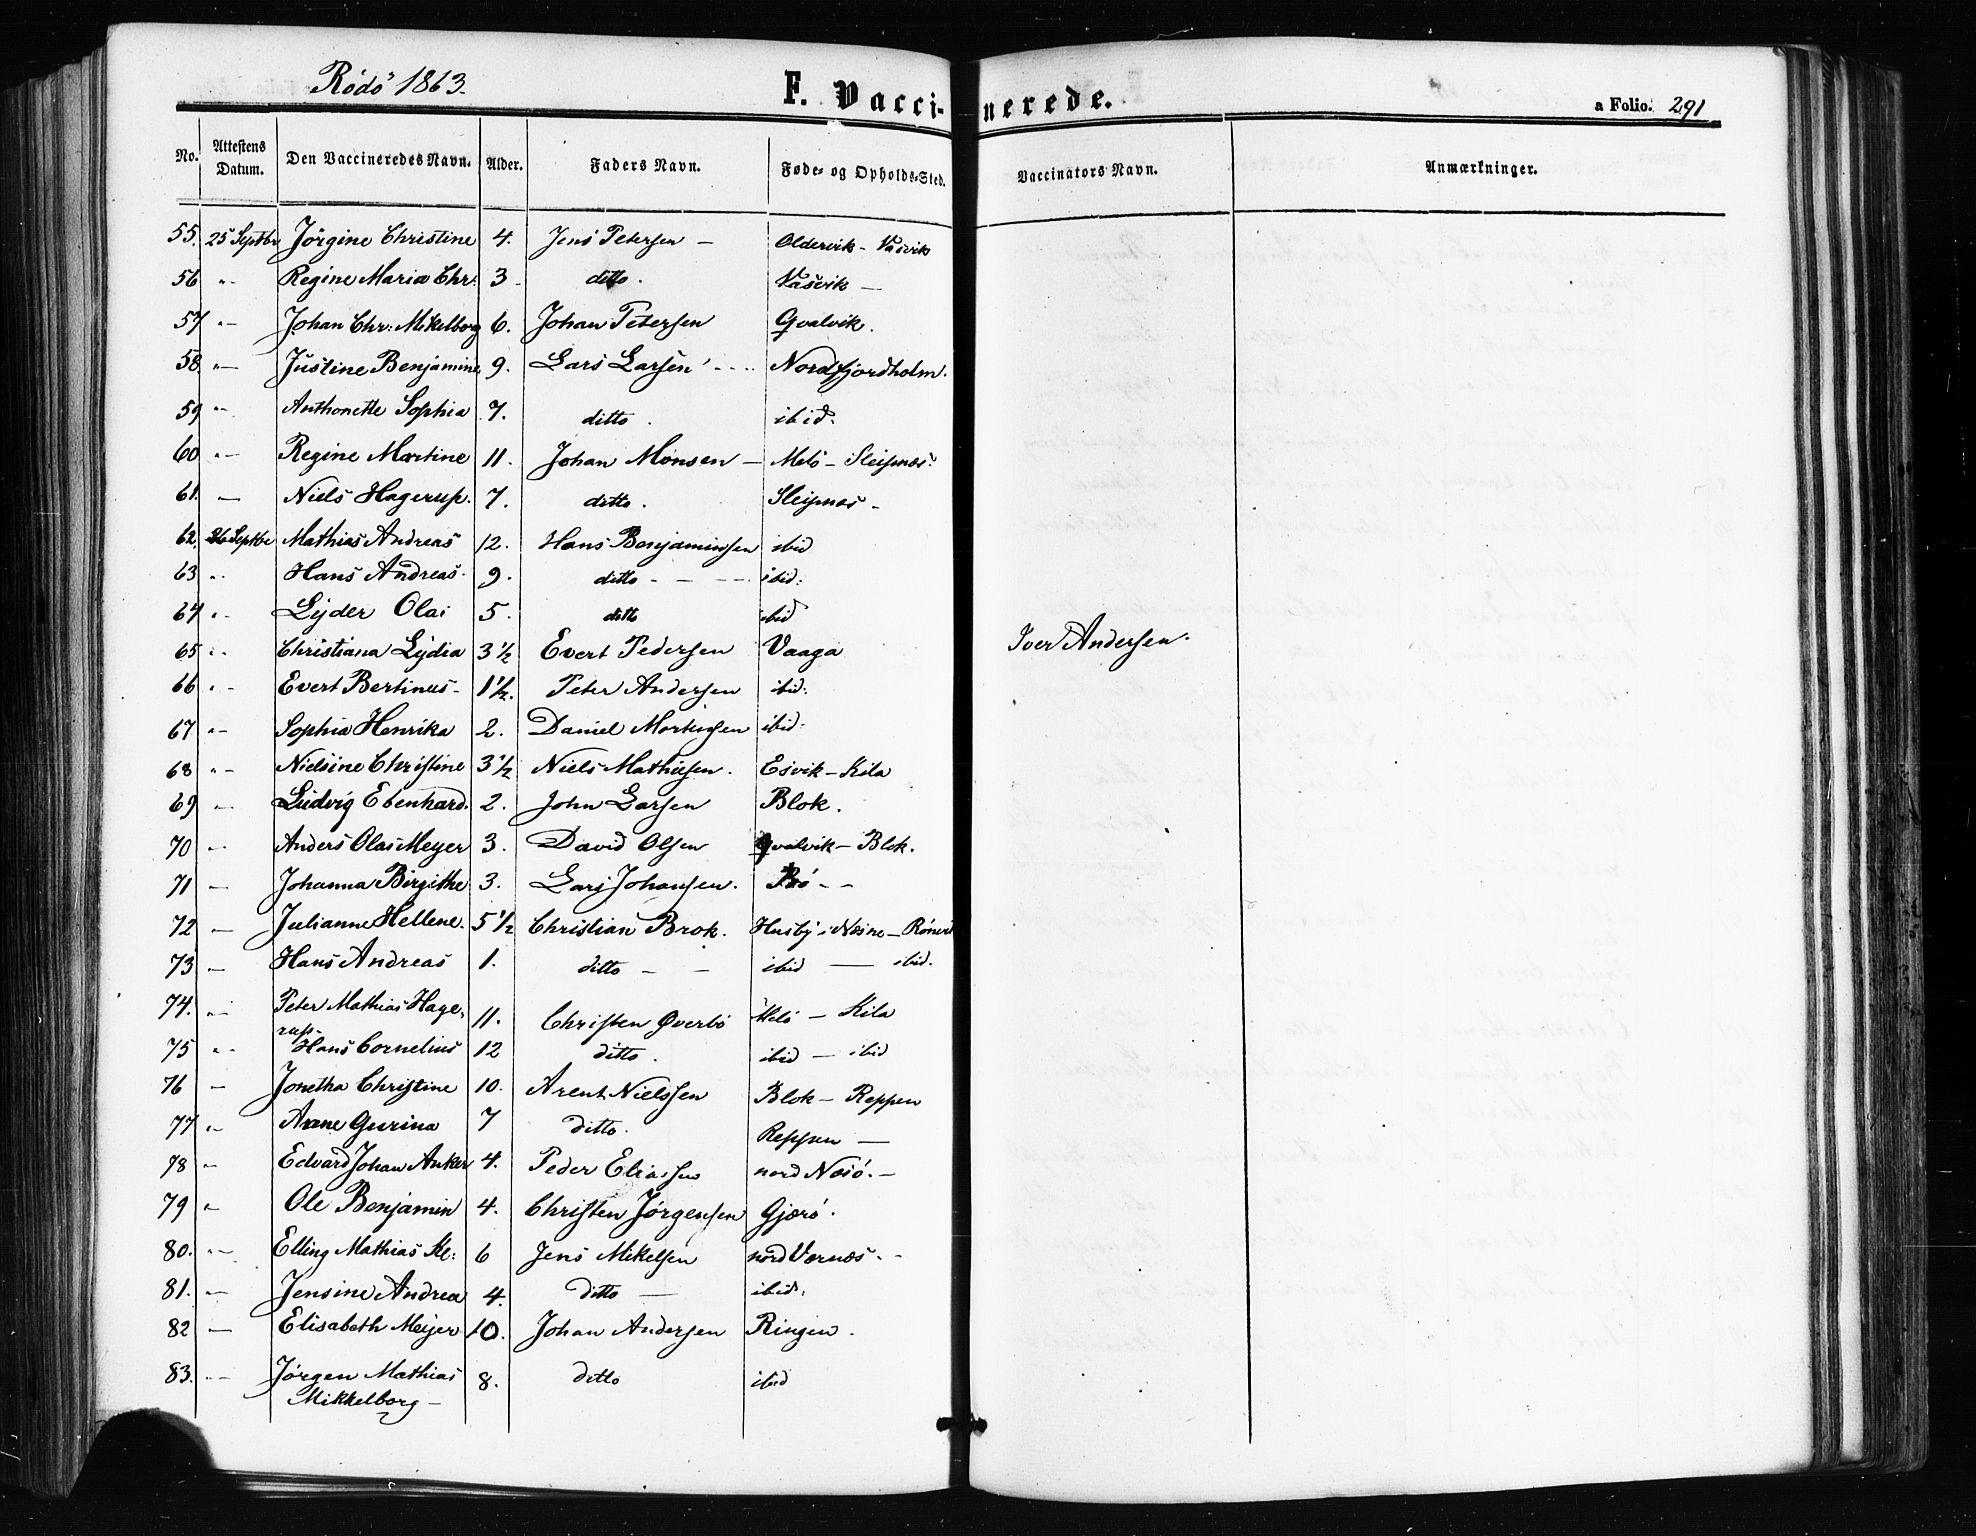 Rödö 1863.
F. Vaccinerede.
a Folio. 291
No. Attestens Datum. Den Vaccineredes Navn. Alder. Faders Navn. Føde- og Opholds-Sted. Vaccinators Navn. Anmærkninger.
55. 25 Septbr Jörgine Christine 4. Jens Petersen — Oldervik - Vasvik
56 „- Regine Maria Chr: 3 ditto. Vasvik —
57 „- Johan Chr: Mikelborg 6. Johan Petersen Qvalvik.
58. „- Justine Benjamine 9. Lars Larsen Nordfjordholm.
59 „- Anthonette Sophia 7. ditto. ibid:
60 „- Regine Martine 11. Johan Monsen — Melö - Sleipnæs:
61. — Niels Hagerup. 7. ditto. Sleipnæs -
62. 26 Septbr Mathias Andreas 12. Hans Benjaminsen ibid
63 „. Hans Andreas. 9. ditto - - - ibid:
64 „- Lyder Olai 5. ditto ibid
65 „. Christiana Lydia 3 1/2 Evert Pedersen Vaaga
66 „- Evert Bertinus- 1 1/2. Peter Andersen ibid:
67 „- Sophia Henrika 2. Daniel Mortensen ibid:
68 „- Nielsine Christine 3 1/2 Niels Mathisen. Esvik - Kila
69 „- Ludvig Ebenhard. 2. John Larsen Blok.
70 „- Anders Olai Meyer 3. David Olsen Qvalvik - Blok.
71 — Johanna Birgithe 3. Lars Johansen.
72 — Julianne Hellene. 5 1/2 Christian Brok. Husby i Næsne -
73 — Hans Andreas 1. ditto - - ibid — ibid.
74. „- Peter Mathias Hage-
rup- 11. Christen Øverbö Melö - Kila
75 „- Hans Cornelius 12 ditto. ibid - ibid
76 — Jonetha Christine 10. Arent Nielssen Blok - Reppen
77 „- Anne Gurina 7 ditto. Reppen —
78 „- Edvard Johan Anker 4. Peder Eliassen nord Næsö. -
79 „- Ole Benjamin 4. Christen Jørgensen Gjærö.
80. „- Elling Mathias Kl: 6 Jens Mikelsen nord Værnæs. -
81. „- Jensine Andrea 4. ditto — ibid:
82 — Elisabeth Meijer 10. Johan Andersen Ringen.
83. „- Jørgen Mathias
Mikkelborg - 8. ditto ibid
Iver Andersen.